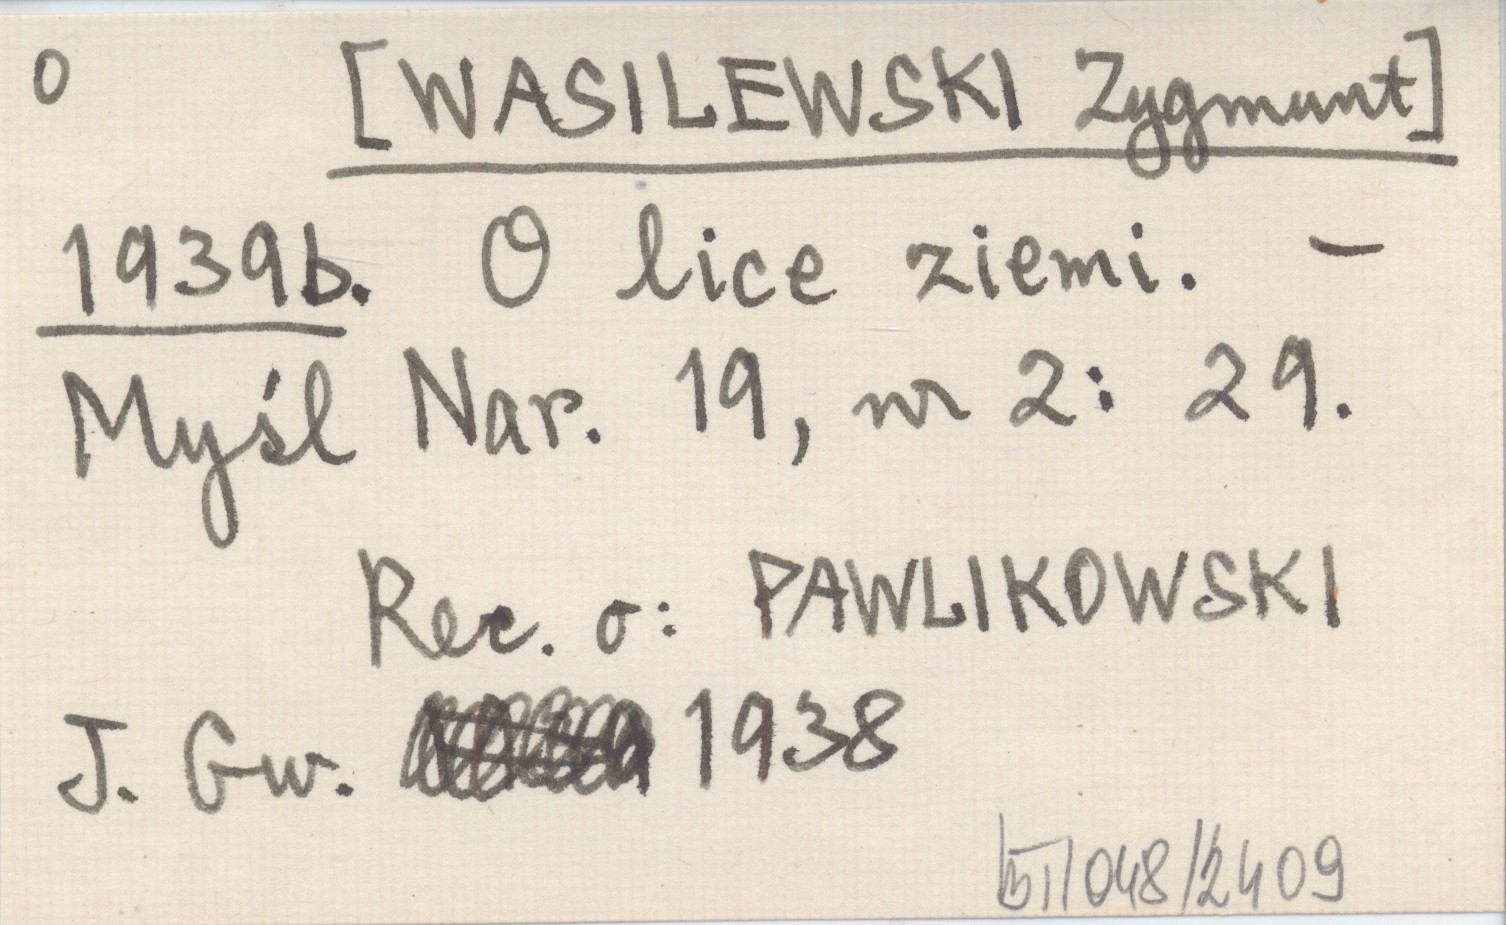 O [WASILEWSKI Zygmunt]
1939b. O lice ziemi. —
Myśl Nar. 19, nr 2: 29.
Rec. o: PAWLIKOWSKI
J. Gw. 1938
048/2409